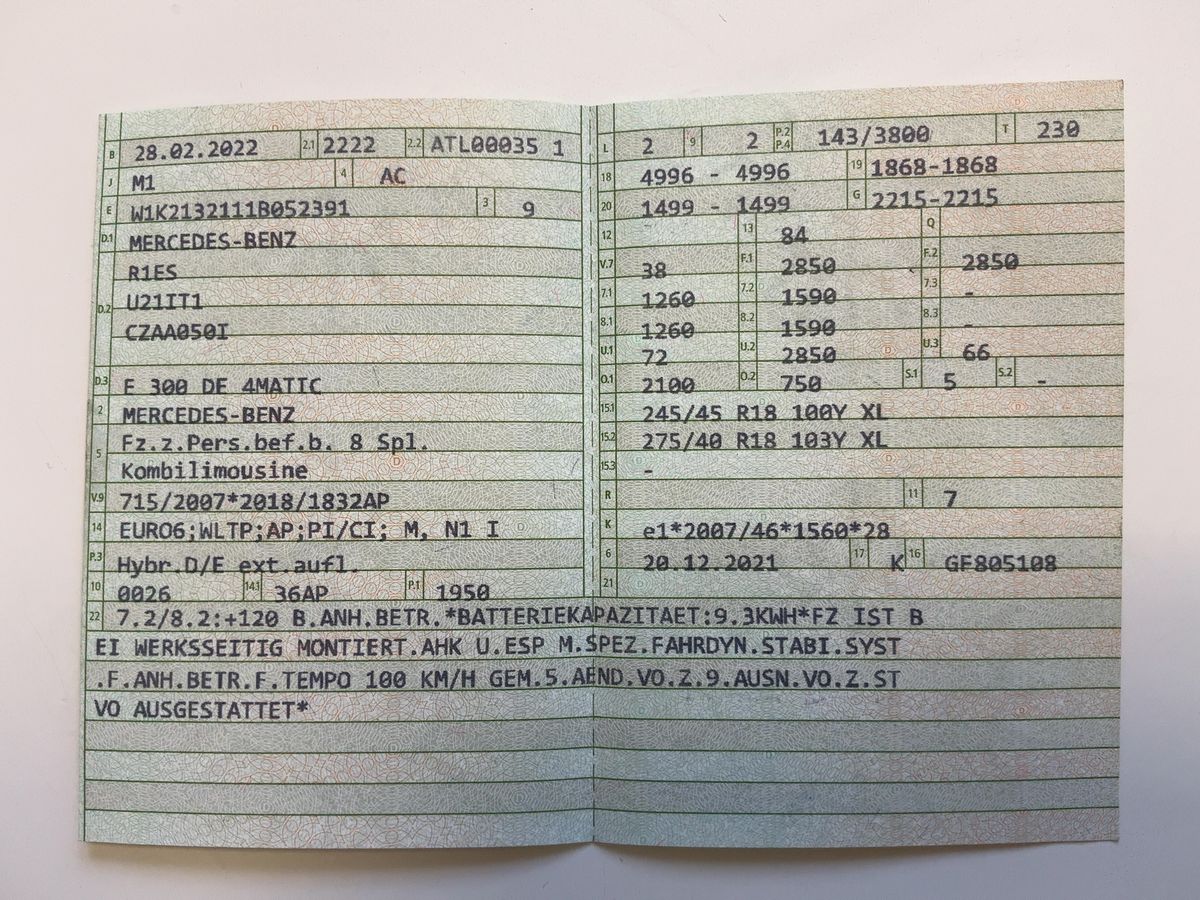 B 28.02.2022 2.1 2222 2.2 ATL00035 1
J M1 4 AC
E W1K2132111B052391 3 9
D.1 MERCEDES-BENZ
R1ES
D.2 U21IT1
CZAA050I
D.3 E 300 DE 4MATIC
2 MERCEDES-BENZ
5 Fz.z.Pers.bef.b. 8 Spl.
Kombilimousine
V.9 715/2007*2018/1832AP
14 EURO6;WLTP;AP;PI/CI; M, N1 I
P.3 Hybr.D/E ext.aufl.
10 0026 14.1 36AP P.1 1950
L 2 9 2 P.2 P.4 143/3800 T 230
18 4996 - 4996 19 1868-1868
20 1499 - 1499 G 2215-2215
12 - 13 84 Q
V.7 38 F.1 2850 F.2 2850
7.1 1260 7.2 1590 7.3 -
8.1 1260 8.2 1590 8.3 -
U.1 72 U.2 2850 U.3 66
O.1 2100 O.2 750 S.1 5 S.2 -
15.1 245/45 R18 100Y XL
15.2 275/40 R18 103Y XL
15.3 -
R 11 7
K e1*2007/46*1560*28
6 20.12.2021 17 K 16 GF805108
21
22 7.2/8.2:+120 B.ANH.BETR.*BATTERIEKAPAZITAET:9.3KWH*FZ IST B
EI WERKSSEITIG MONTIERT.AHK U.ESP M.SPEZ.FAHRDYN.STABI.SYST
.F.ANH.BETR.F.TEMPO 100 KM/H GEM.5.AEND.VO.Z.9.AUSN.VO.Z.ST
VO AUSGESTATTET*